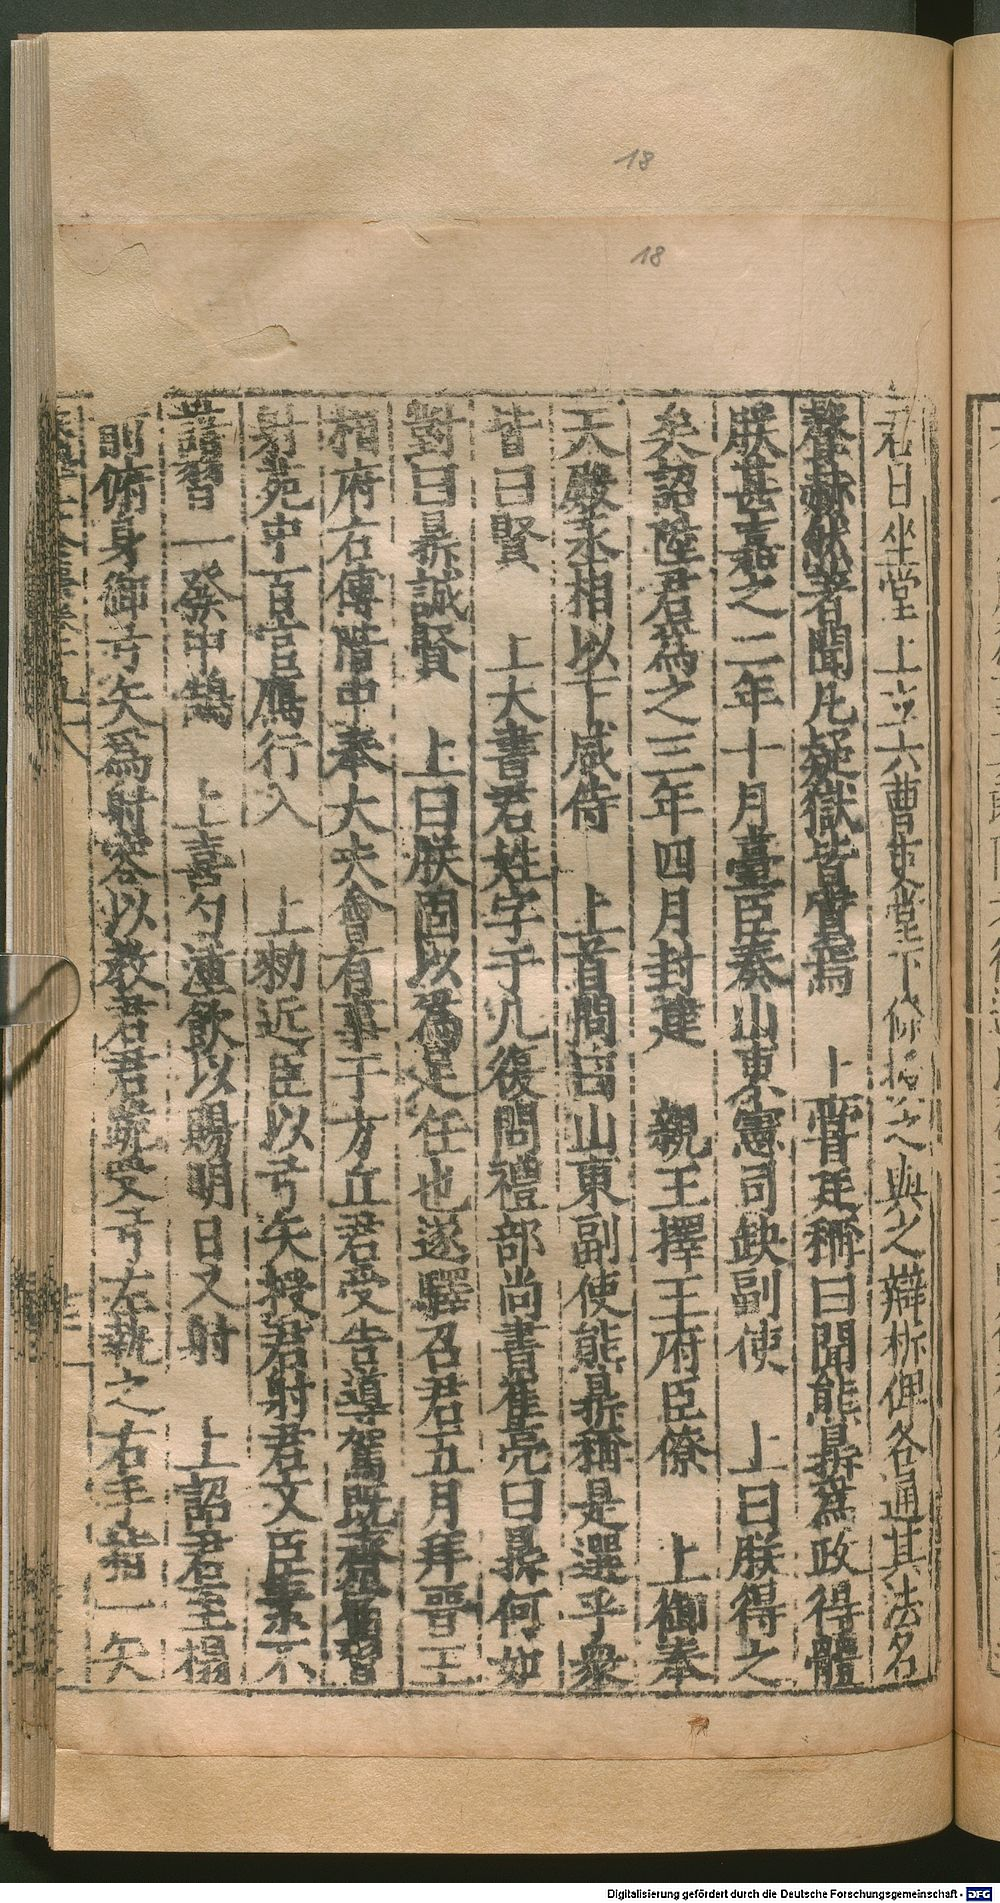 18
18
君日坐堂上立六曹吏堂下條㨿之與之辯析俾各通其法名
聲赫然著聞凡疑獄皆書焉　上嘗廷稱曰聞熊鼎爲政得體
朕甚嘉之二年十月臺臣奏山東憲司缺副使　上曰朕得之
矣詔陞君爲之三年四月封建　親王擇王府臣僚　上御奉
天殿丞相以下咸侍　上首問曰山東副使熊鼎稱是選乎衆
皆曰賢　上大書君姓字于几復問禮部尚書崔亮曰鼎何如
對曰鼎誠賢　上曰朕固以爲是任也遂驛召君五月拜晋王
相府右傅階中奉大夫會有事于方丘君受告導駕既齋宿習
射苑中百官鴈行入　上勑近臣以弓矢授君射君文臣素不
諳習一發中鵠　上喜勺湩飲以賜明日又射　上詔君至榻
前俯身御弓矢爲射容以教君君跪受弓左執之右手搢一矢
Digitalisierung gefördert durch die Deutsche Forschungsgemeinschaft - DFG